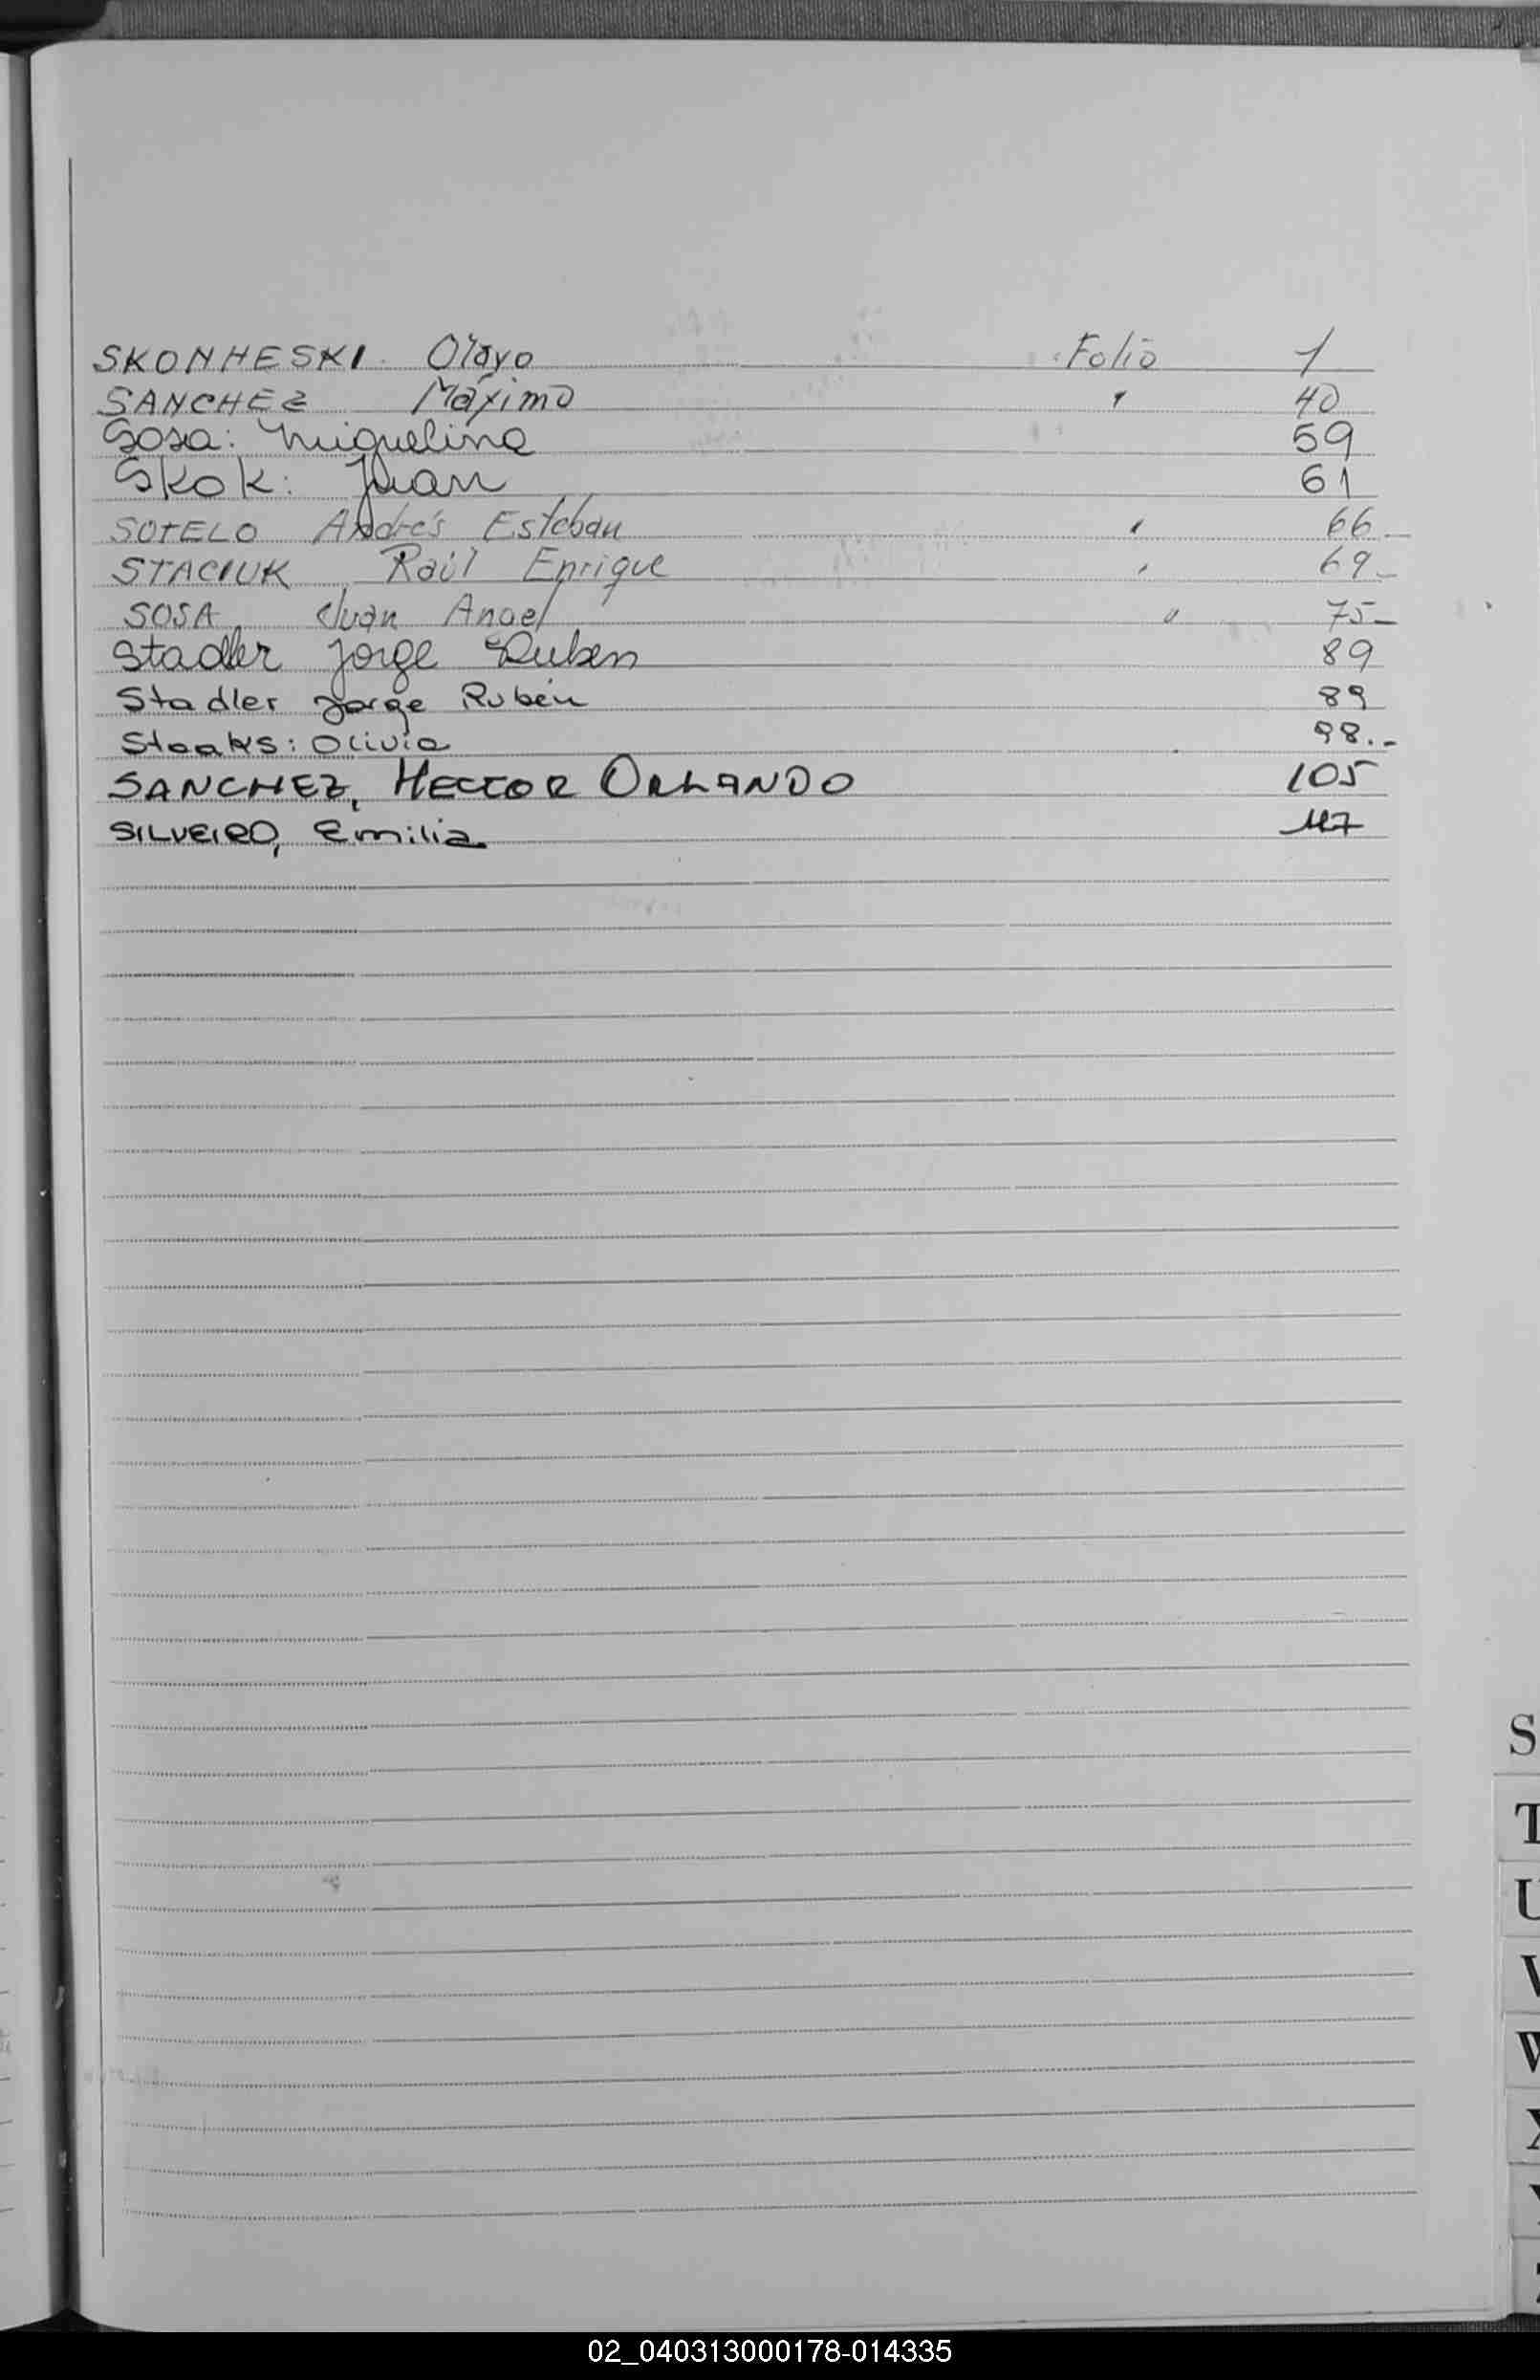 SKONHESKI Olayo Folio 1
SANCHEZ Máximo " 40
Sosa: Miguelina 59
Skok: Juan 61
SOTELO Andrés Esteban " 66.-
STACIUK Raúl Enrique " 69.-
SOSA, Juan Angel " 75.-
Stadler Jorge Ruben 89
Stadler Jorge Rubén 89
Staaks: Olivia 98.-
SANCHEZ, HECTOR ORLANDO 105
SILVEIRO, Emilia 117
S
T
U
V
W
X
Y
Z
02_040313000178-014335